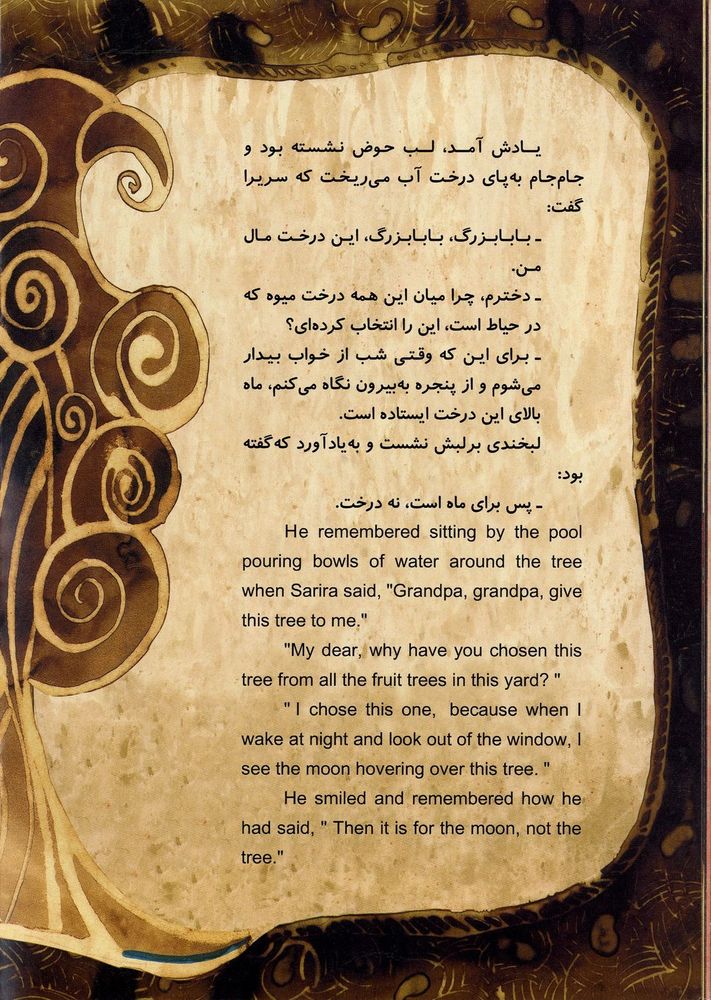 یادش آمد، لب حوض نشسته بود و
جام‌جام به‌پای درخت آب می‌ریخت که سریرا
گفت:
ـ بابابزرگ، بابابزرگ، این درخت مال
من.
ـ دخترم، چرا میان این همه درخت میوه که
در حیاط است، این را انتخاب کرده‌ای؟
ـ برای این که وقتی شب از خواب بیدار
می‌شوم و از پنجره به‌بیرون نگاه می‌کنم، ماه
بالای این درخت ایستاده است.
لبخندی برلبش نشست و به‌یادآورد که گفته
بود:
ـ پس برای ماه است، نه درخت.
He remembered sitting by the pool
pouring bowls of water around the tree
when Sarira said, "Grandpa, grandpa, give
this tree to me."
"My dear, why have you chosen this
tree from all the fruit trees in this yard? "
" I chose this one, because when I
wake at night and look out of the window, I
see the moon hovering over this tree. "
He smiled and remembered how he
had said, " Then it is for the moon, not the
tree."